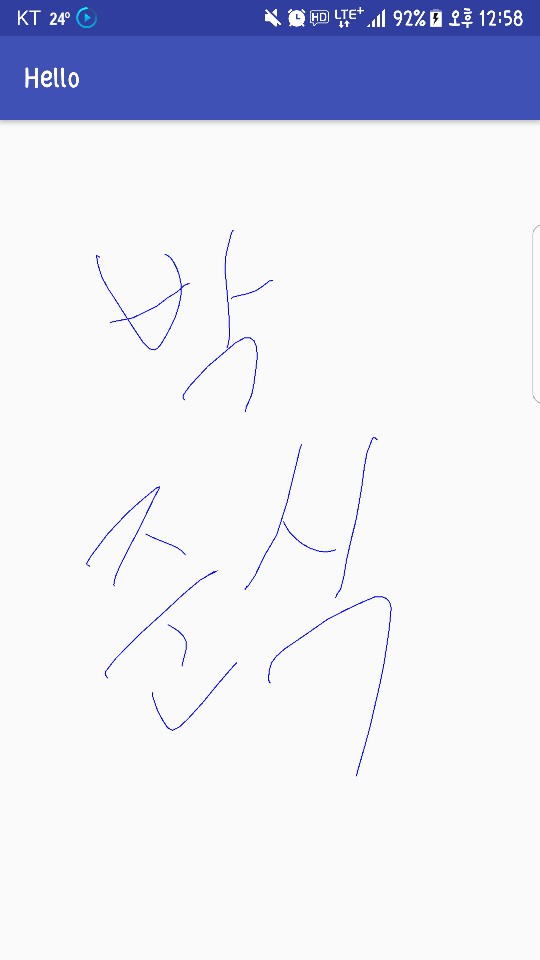 KT 24° HD LTE+ 92% 오후 12:58
Hello
박
준식